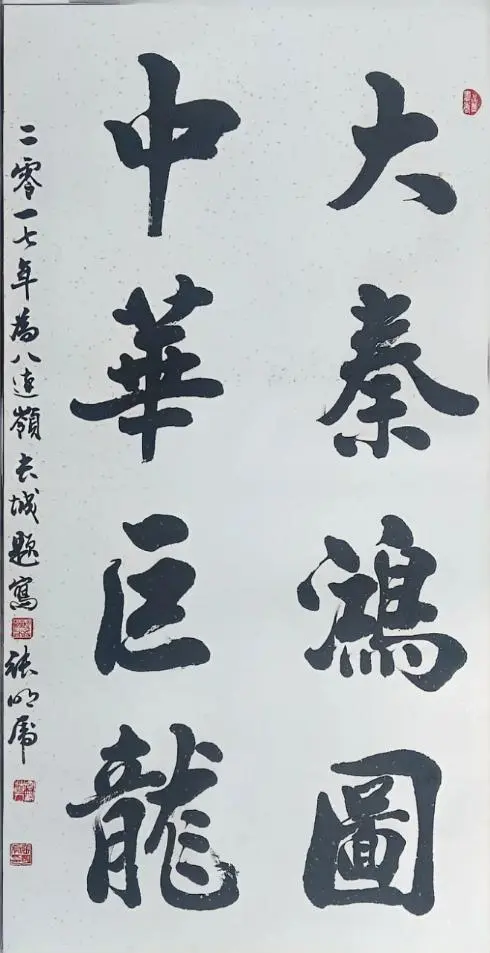 大秦鴻圖
中華巨龍
二零一七年為八達嶺長城題寫
張明虎